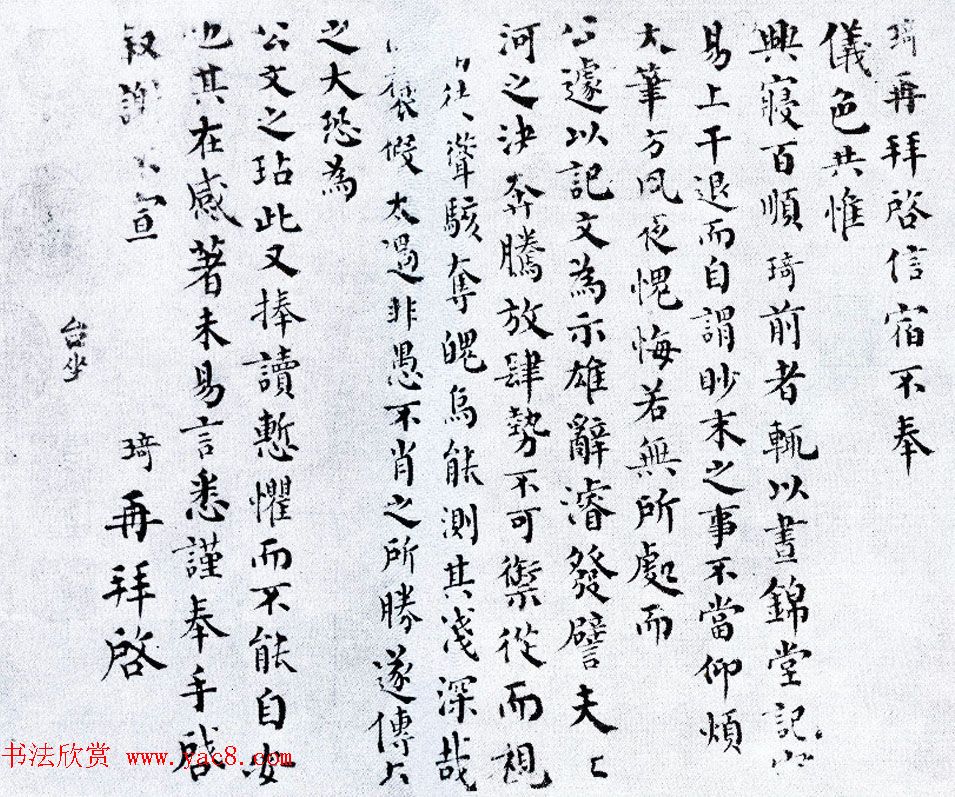 琦再拜啓信宿不奉
儀色共惟
興寢百順琦前者輒以晝錦堂記
易上干退而自謂眇末之事不當仰煩
大筆方夙夜愧悔若無所處而
公遽以記文為示雄辭濬發譬夫
河之決奔騰放肆勢不可禦從而視
徒聳駭奪魄烏能測其淺深哉
褒假太過非愚不肖之所勝遂傳
之大恐為
公文之玷此又捧讀慙懼而不能自安
也其在感著未易言悉謹奉手啓
敘謝不宣 琦再拜啓
台坐
书法欣赏 www.yac8.com